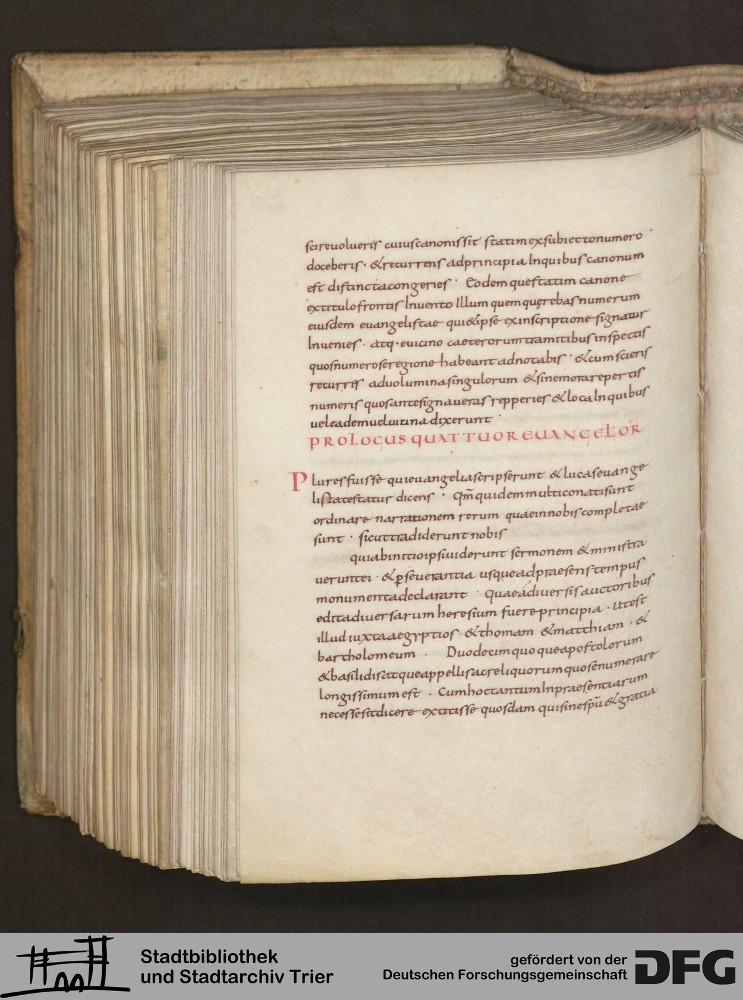 scireuolueris cuiuscanonissit statimexsubiectonumero
doceberis · &recurrens adprincipia Inquibuscanonum
est distinctacongeries · Eodemquestatim canone
extitulofrontis Inuento Illum quem quęrebasnumerum
eiusdem euangelistae qui&ipse exinscriptione signatur
Inuenies · atq· euicino caeterorumtramitibusinspectis
quosnumeroseregione habeant adnotabis · &cumscieris
recurris aduoluminasingulorum &sinemorarepertis
numeris quosantesignaueras repperies &locaInquibus
ueleademueluicinadixerunt ·
PROLOGUS QUATTUOR EUANGELOR
Pluresfuisse quieuangeliascripserunt &lucaseuange
listatestatur dicens · Qm̄quidemmulticonatisunt
ordinare narrationem rerum quaeinnobiscompletae
sunt · sicuttradiderunt nobis
quiabinitioipsiuiderunt sermonem &ministra
ueruntei · &ꝑseuerantia usqueadpraesenstempus
monumentadeclarant · Quaeádiuersisauctoribus
editadiuersarum heresium fuereprincipia · utest
illudiuxtaaegyptios · &thomam &matthiam · &
bartholomeum · Duodecimquoqueapostolorum
&basilidisatqueappellisacreliquorumquosenumerare
longissimumest · CumhoctantumInpraesentiarum
necessesitdicere extitisse quosdam quisinespū&gratia
Stadtbibliothek
und Stadtarchiv Trier
gefördert von der
Deutschen Forschungsgemeinschaft
DFG